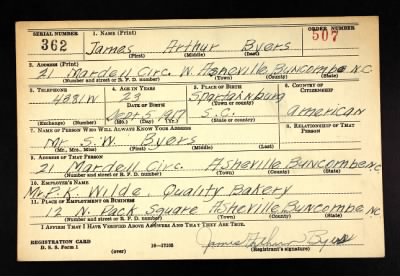 SERIAL NUMBER 1. NAME (Print) ORDER NUMBER
362 James Arthur Byers 507
(First) (Middle) (Last)
2. ADDRESS (Print)
21 Mardell Circ. W. Asheville Buncombe N.C.
(Number and street or R. F. D. number) (Town) (County) (State)
3. TELEPHONE 4. AGE IN YEARS 5. PLACE OF BIRTH 6. COUNTRY OF CITIZENSHIP
4381W 23 Spartanburg
DATE OF BIRTH (Town or county)
Sept 1917 S.C. American
(Exchange) (Number) (Mo.) (Day) (Yr.) (State or country)
7. NAME OF PERSON WHO WILL ALWAYS KNOW YOUR ADDRESS 8. RELATIONSHIP OF THAT PERSON
Mr. S. W. Byers
(Mr., Mrs., Miss) (First) (Middle) (Last)
9. ADDRESS OF THAT PERSON
21 Mardell Circ. Asheville Buncombe N.C.
(Number and street or R. F. D. number) (Town) (County) (State)
10. EMPLOYER'S NAME
Mr. P. K. Wilde Quality Bakery
11. PLACE OF EMPLOYMENT OR BUSINESS
12 N. Pack Square Asheville Buncombe NC
(Number and street or R. F. D. number) (Town) (County) (State)
I AFFIRM THAT I HAVE VERIFIED ABOVE ANSWERS AND THAT THEY ARE TRUE.
James Arthur Byers
REGISTRATION CARD
D. S. S. Form 1 (over) 16—17105 (Registrant's signature)